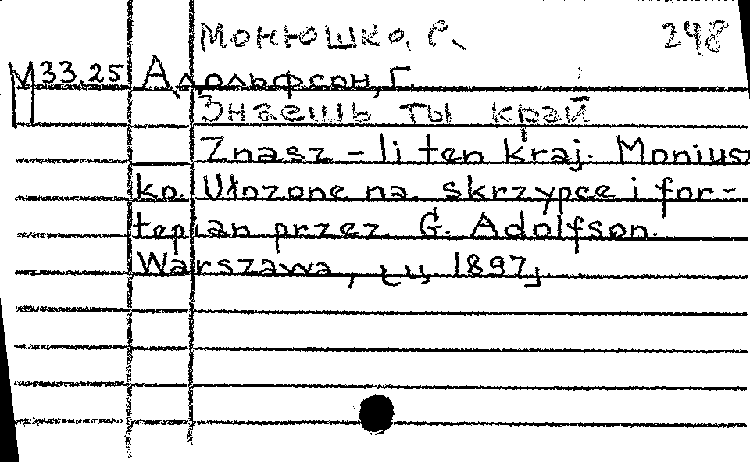 Монюшко, С. 248
М33.25 Адольфсон, Г.
Знаешь ты край
Znasz – li ten kraj. Monius
ko. Ułozone na skrzypce i for-
tepian przez G. Adolfson.
Warszawa, ц. 1897